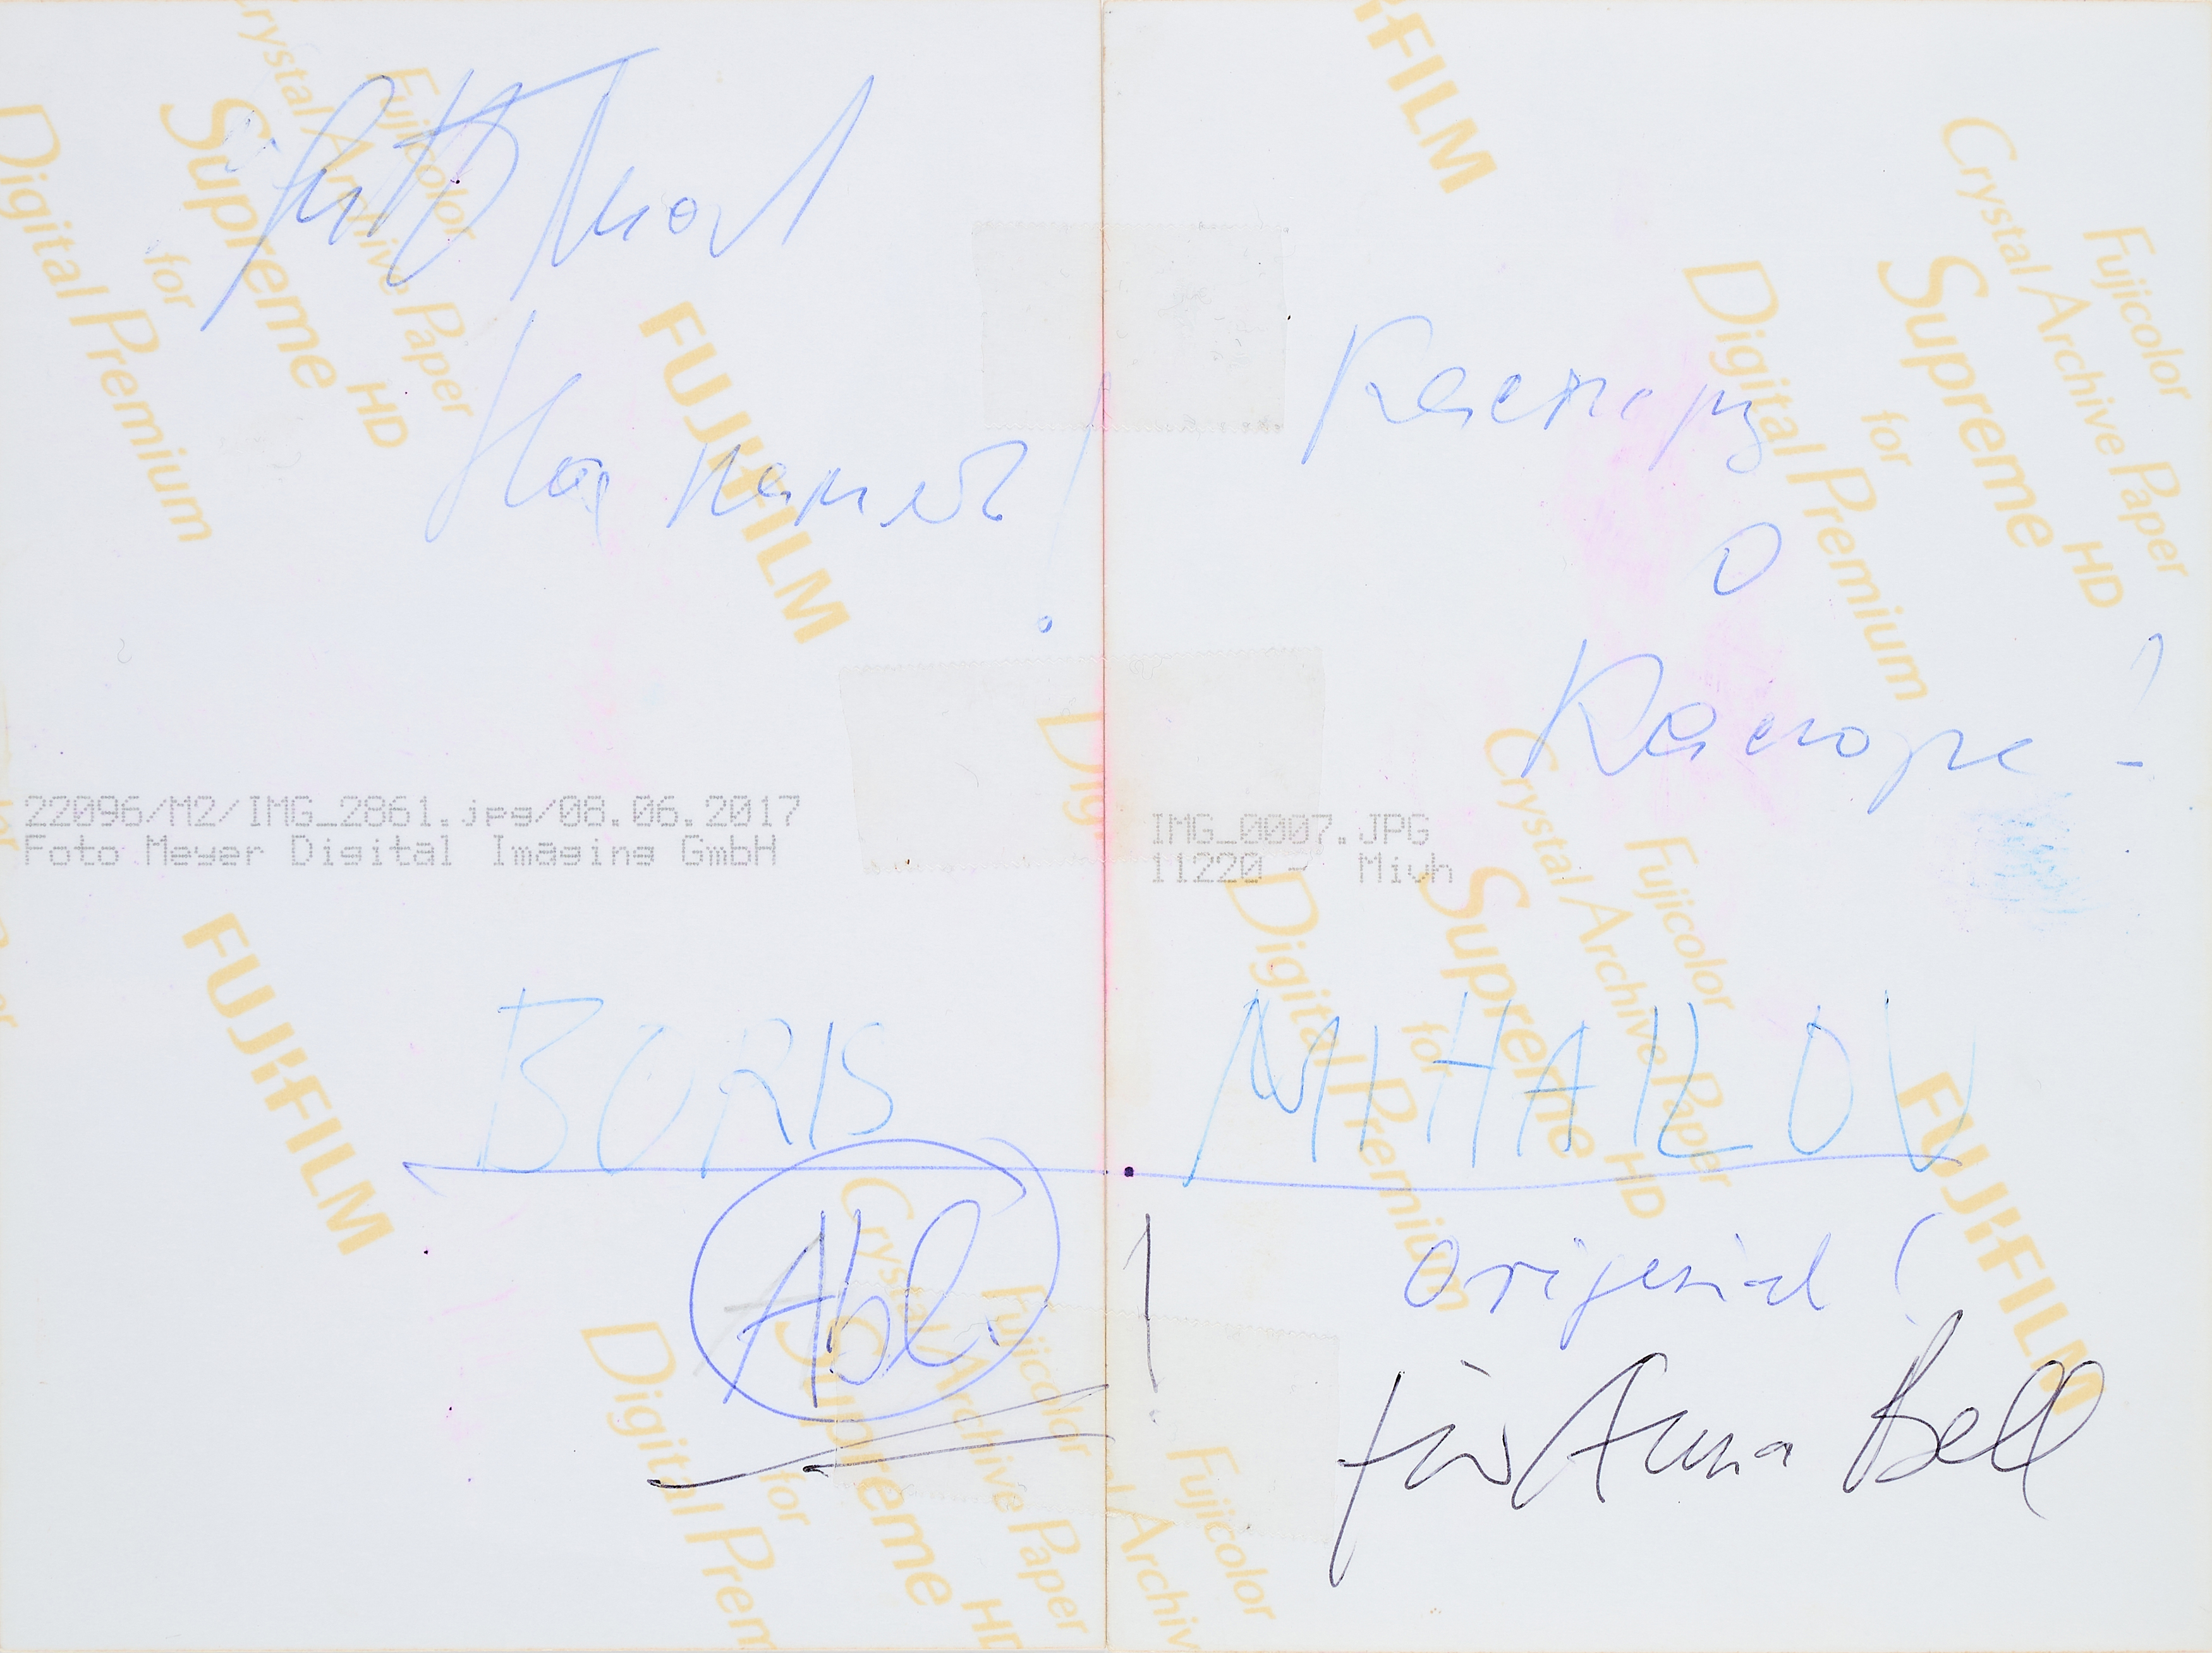 На память!
Каспару
О
Каспаре!
22096/M2/IMG_2861.jpg/08.06.2017
Foto Meyer Digital Imaging GmbH
IMG_0007.JPG
11220 - Mivh
BORIS MIHAILOV
Original!
für Anna Bell
FUJIFILM
Fujicolor
Crystal Archive Paper
Supreme HD
for
Digital Premium
FUJIFILM
FUJIFILM
Fujicolor
Crystal Archive Paper
Supreme HD
for
Digital Premium
FUJIFILM
Fujicolor
Crystal Archive Paper
Supreme HD
for
Digital Premium
FUJIFILM
Fujicolor
Crystal Archive Paper
Supreme HD
for
Digital Prem
Fujicolor
Archiv